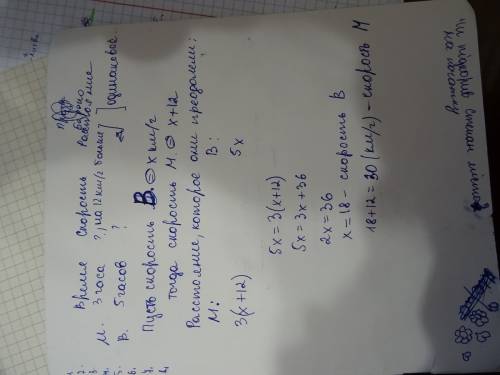 Время Скорость Расстояние
М. 3 часа ?, на 12 км/г больше ? одинаковое
В. 5 часов ?
Пусть скорость В. - х км/г
тогда скорость М. - х+12
Расстояние, которое они преодолели:
М: В:
3(х+12) 5х
5х = 3(х+12)
5х = 3х + 36
2х = 36
х = 18 - скорость В
18+12 = 30 (км/г) - скорость М
1.
2.
3.
4.
5.
6.
7.